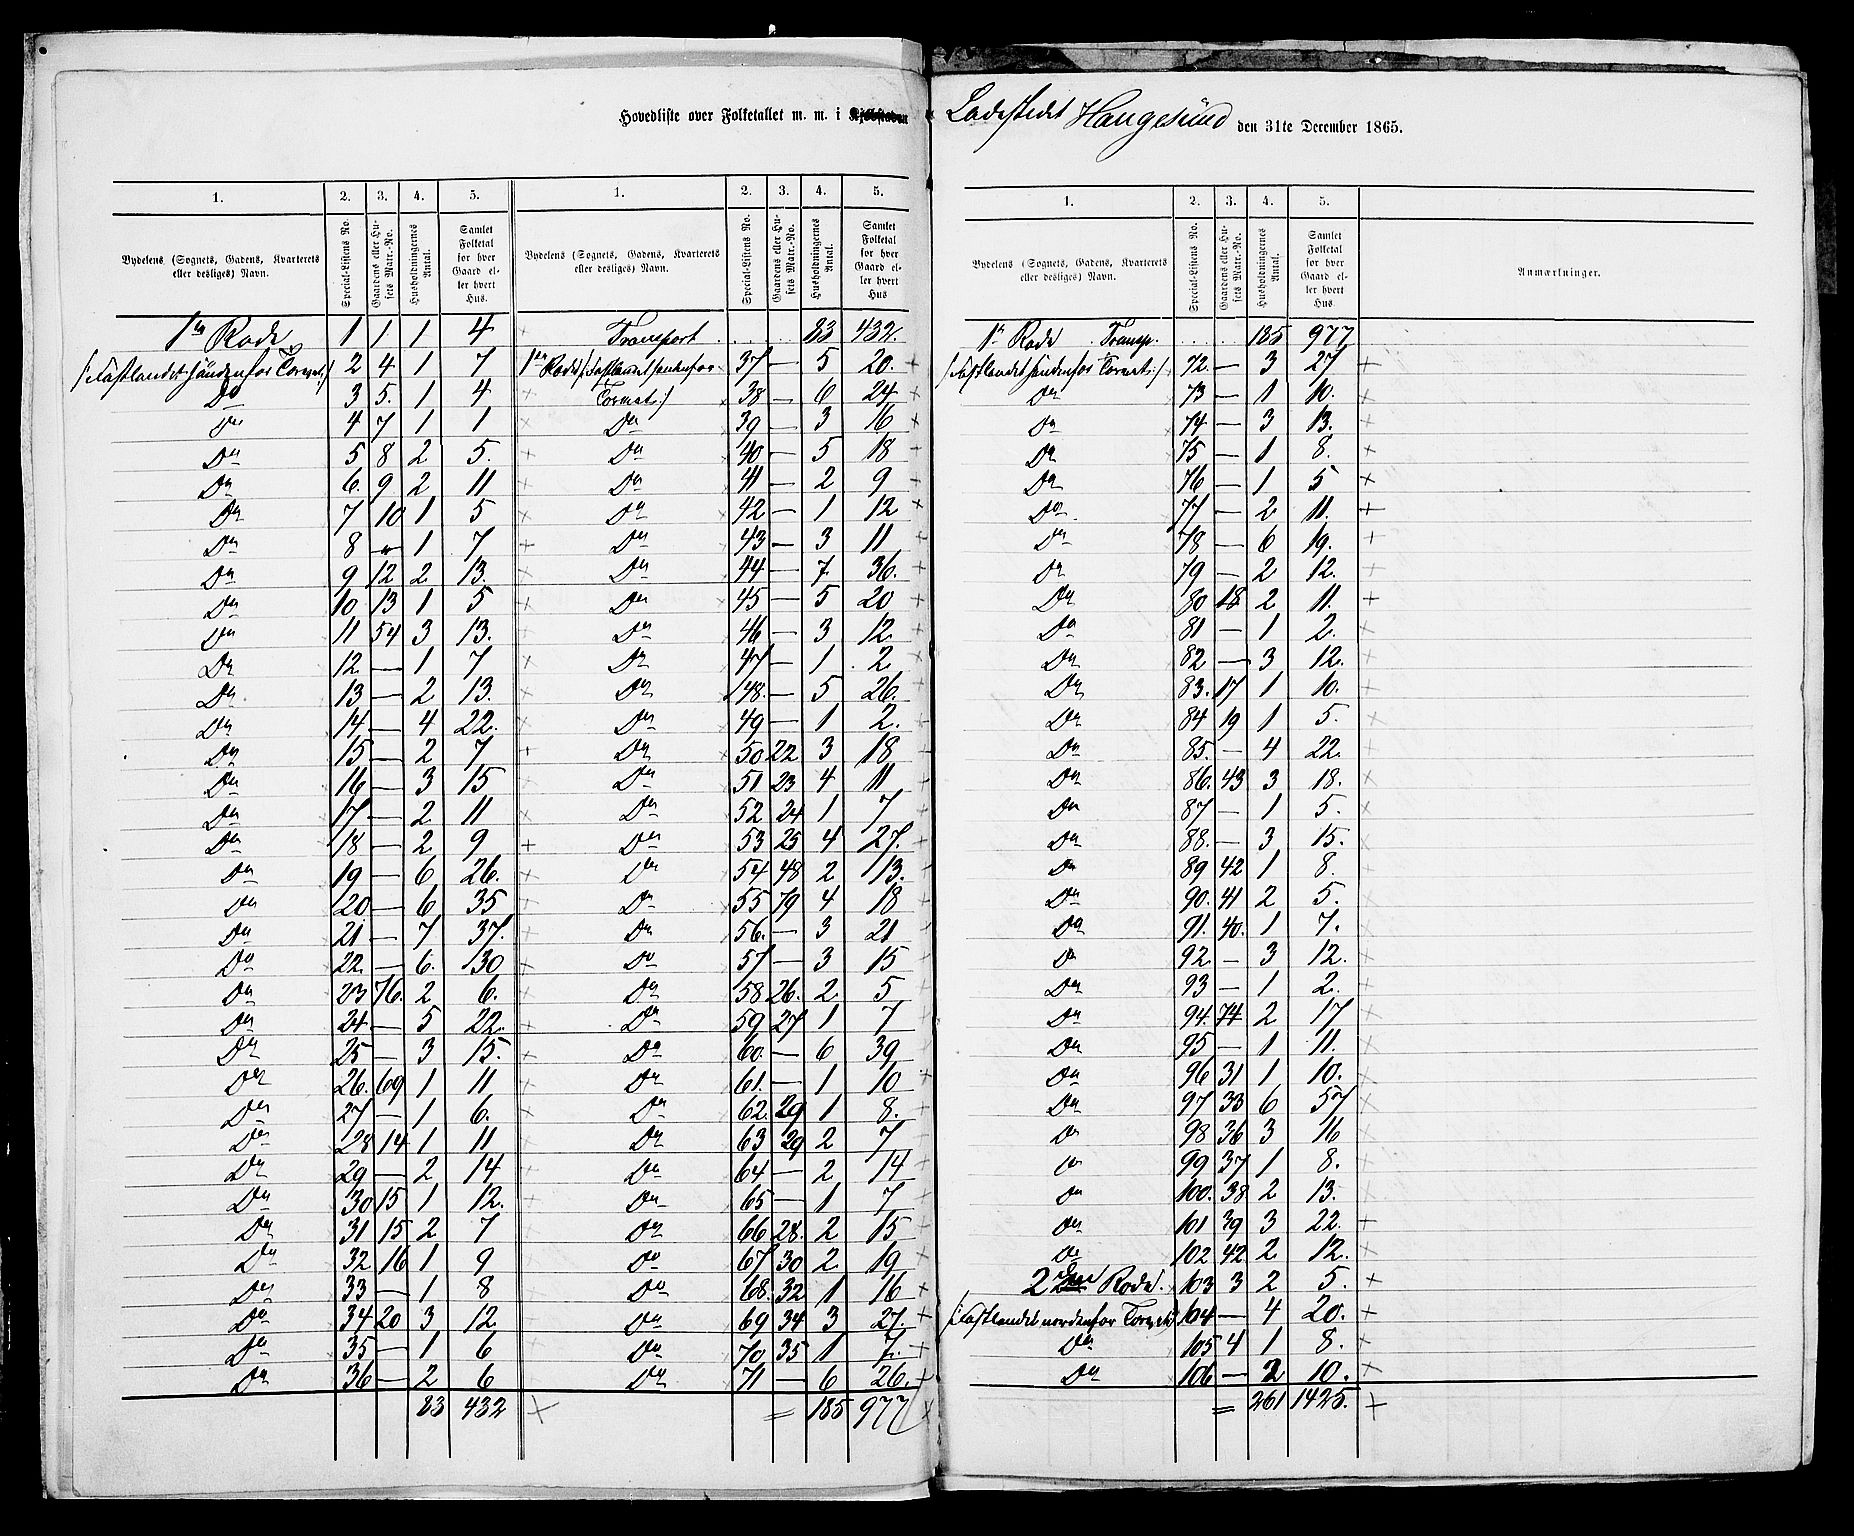 Hovedliste over Folketallet m. m. i Kjøbstaden Ladestedet Haugesund den 31te December 1865.
1. 2. 3. 4. 5. 1. 2. 3. 4. 5.
Bydelens (Sognets, Gadens, Kvarterets eller desliges) Navn. Special-Listens No. Gaardens eller Husets Matr.-No. Husholdningernes Antal. Samlet Folketal for hver Gaard eller hvert Hus. Bydelens (Sognets, Gadens, Kvarterets eller desliges) Navn. Special-Listens No. Gaardens eller Husets Matr.-No. Husholdningernes Antal. Samlet Folketal for hver Gaard eller hvert Hus
1ste Rode 1 1 1 4 × Transport . . . . . 83 432.
(:Fastlandet søndenfor Torvet:) 2 4 1 7 1ste Rode (:Fastlandet søndenfor 37 — 5 20. +
Do 3 5. 1 4 × Torvet:) 38 — 6 24 ×
Do 4 7 1 1 × Do 39 — 3 16 +
Do 5 8 2 5. × Do 40 — 5 18
Do 6. 9 2 11 × Do 41 — 2 9
Do 7 10 1 5 × Do 42 — 1 12 ×
Do 8 " 1 7 + Do 43 — 3 11
Do 9 12 2 13. × Do 44 — 7 36. +
Do 10 13 1 5 × Do 45 — 5 20 +
Do 11 54 3 13. × Do 46 — 3 12.
Do 12 — 1 7 × Do 47 — 1 2
Do 13 — 2 13. × Do 48. — 5 26.
Do 14 — 4 22. × Do 49 — 1 2.
Do 15 — 2 7 + Do 50 22 3 18
Do 16 — 3 15 × Do 51 23 4 11
Do 17 — 2 11 × Do 52 24 1 7
Do 18 — 2 9 + Do 53 25 4 27.
Do 19 — 6 26. × Do 54 48 2 13.
Do 20 — 6 35 × Do 55 79 4 18
Do 21 — 7 37. × Do 56. — 3 21
Do 22. — 6. 30 × Do 57 — 3 15
Do 23 76. 2 6. × Do 58 26. 2 5
Do 24 — 5 22. × Do 59 27 1 7
Do 25 — 3 15. × Do 60 — 6 39
Do 26. 69 1 11 × Do 61. — 1 10 ×
Do 27 — 1 6. × Do 62. 29 1 8.
Do 28 14 1 11 × Do 63 29 2 7
Do 29 — 2 14 × Do 64 — 2 14
Do 30 15 1 12. × Do 65 — 1 7
Do 31 15 2 7 × Do 66 28. 2 15
Do 32 16 1 9 × Do 67 30 2 19
Do 33 — 1 8 × Do 68. 32 1 16 ×
Do 34 20 3 12 × Do 69 34 3 27. +
Do 35 — 1 6 × Do 70 35 1 7. +
Do 36 — 2 6 × Do 71 — 6 26. +
83 432 × = 185 977 ×
1. 2. 3. 4. 5.
Bydelens (Sognets, Gadens, Kvarterets eller desliges) Navn. Special-Listens No. Gaardens eller Husets Matr.-No. Husholdningernes Antal. Samlet Folketal for hver Gaard eller hvert Hus Anmærkninger.
1ste Rode Transp. . . . 185 977
(:Fastlandet søndenfor Torvet:) 72. — 3 27 +
Do 73 — 1 10. ×
Do 74 — 3 13. ×
Do 75 — 1 8. ×
Do 76 — 1 5 ×
Do 77 — 2 11. +
Do 78 — 6 19. +
Do 79 — 2 12. +
Do 80 18 2 11. +
Do 81 — 1 2. ×
Do 82 — 3 12. ×
Do 83. 17 1 10. ×
Do 84 19 1 5. ×
Do 85. — 4 22. ×
Do 86. 43 3 18. ×
Do 87 — 1 5. ×
Do 88. — 3 15. ×
Do 89 42 1 8. ×
Do 90. 41 2 5. ×
Do 91. 40. 1 7. ×
Do 92. — 3 12. ×
Do 93 — 1 2. ×
Do 94. 74 2 17 ×
Do 95 — 1 11. ×
Do 96 31 1 10. ×
Do 97 33 6 57 ×
Do 98 36 3 16 ×
Do 99 37 1 8. ×
Do 100. 38 2 13. ×
Do 101 39 3 22. +
Do 102 42 2 12. ×
2den Rode. 103 3 2 5. +
(:Fastlandet nordenfor Torvet:) 104 — 4 20. +
Do 105 4 1 8. +
Do 106 — 2 10. ×
= 261 1425. +